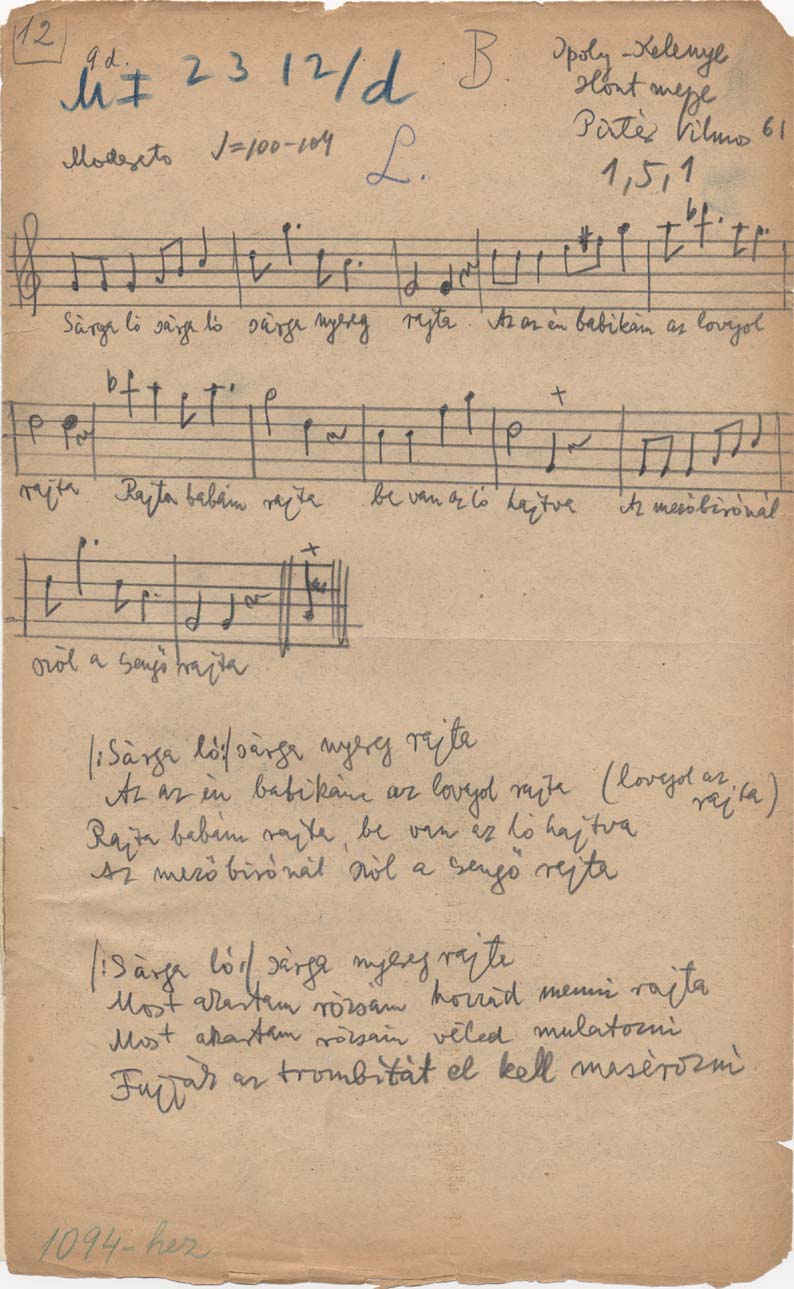 12
9d.
MF 2312/d
B.
Ipoly-Kelenye
Hont megye
Pintér Vilmos 61
1, 5, 1
Modesato ♩=100-104
L.
Sárga ló sárga ló sárga nyereg rajta. Az az én babikám az lovagol
rajta Rajta babám rajta be van az ló hajtva Az mezőbirónál
szól a sengő rajta
/:Sárga ló:/ sárga nyereg rajta
Az az én babikám az lovagol rajta (lovagol az
rajta)
Rajta babám rajta, be van az ló hajtva
Az mezőbirónál szól a sengő rajta
/:Sárga ló:/ sárga nyereg rajta
Most akartam rózsám hozzád menni rajta
Most akartam rózsám véled mulatozni
Fujják az trombitát el kell masérozni
1094-hez